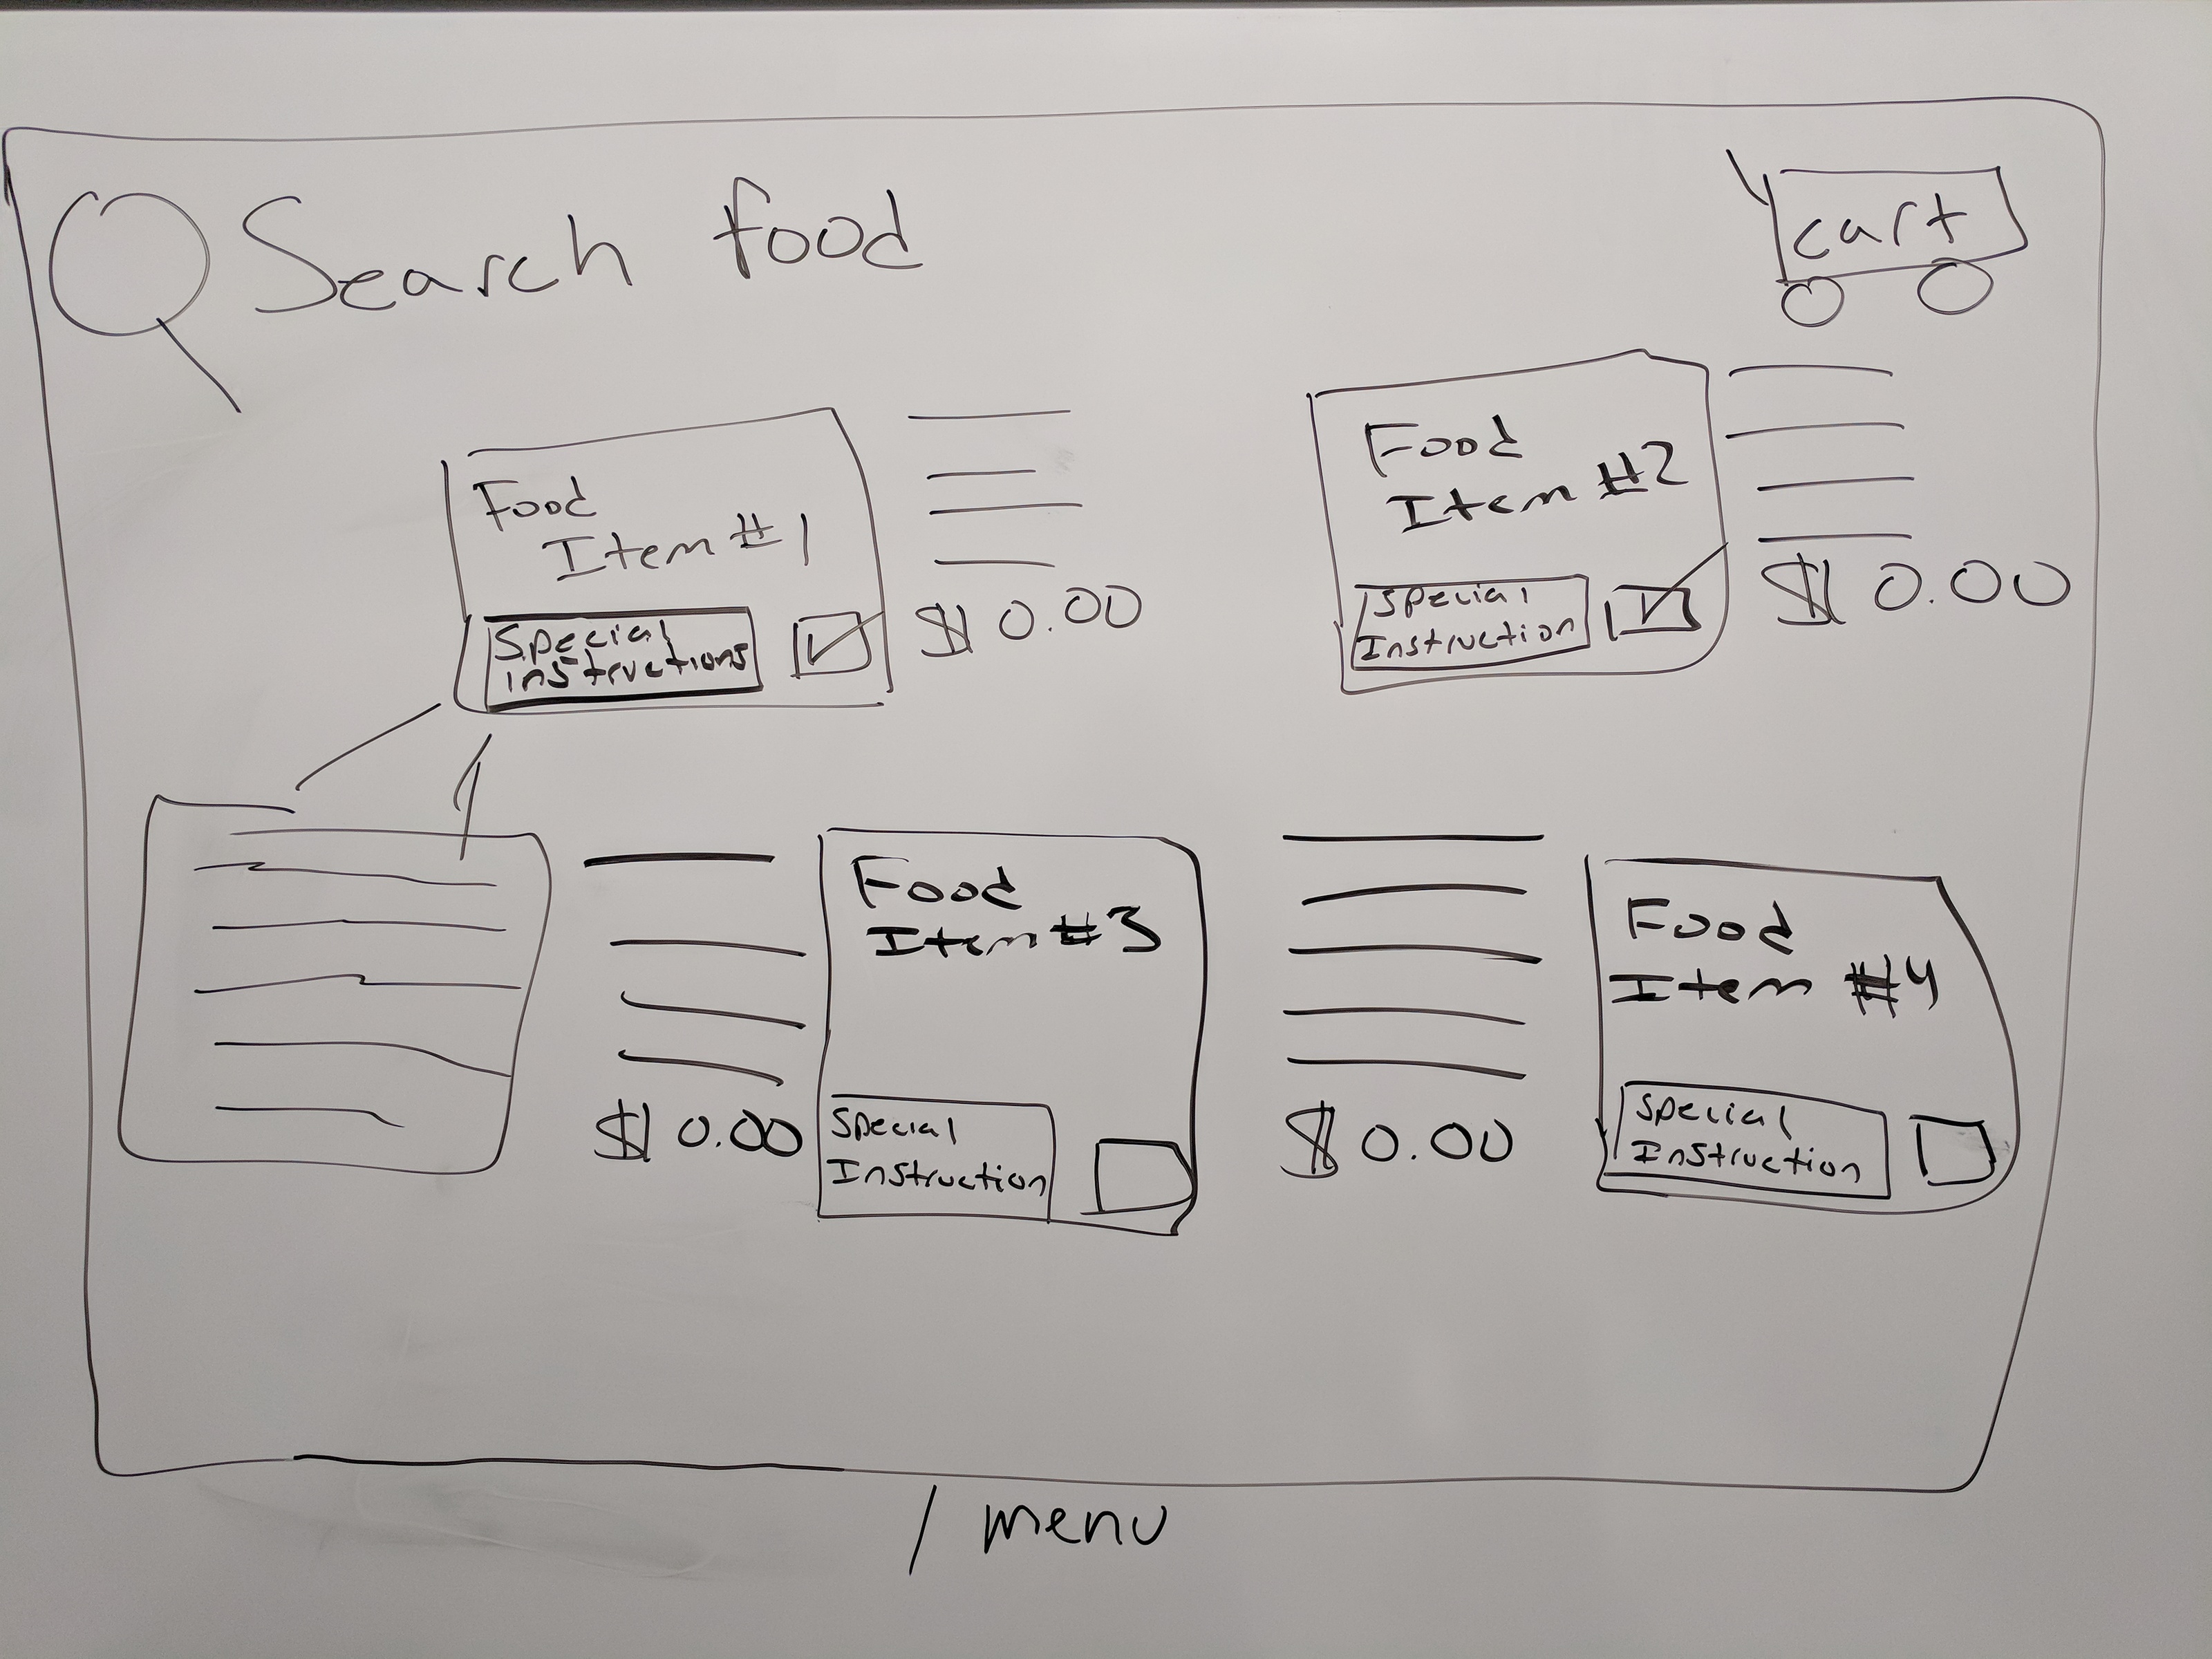 Search food
cart
Food
Item #1
Special
instructions
$ 0.00
Food
Item #2
Special
Instruction
$ 0.00
$ 0.00
Food
Item #3
Special
Instruction
$ 0.00
Food
Item #4
Special
Instruction
/ menu